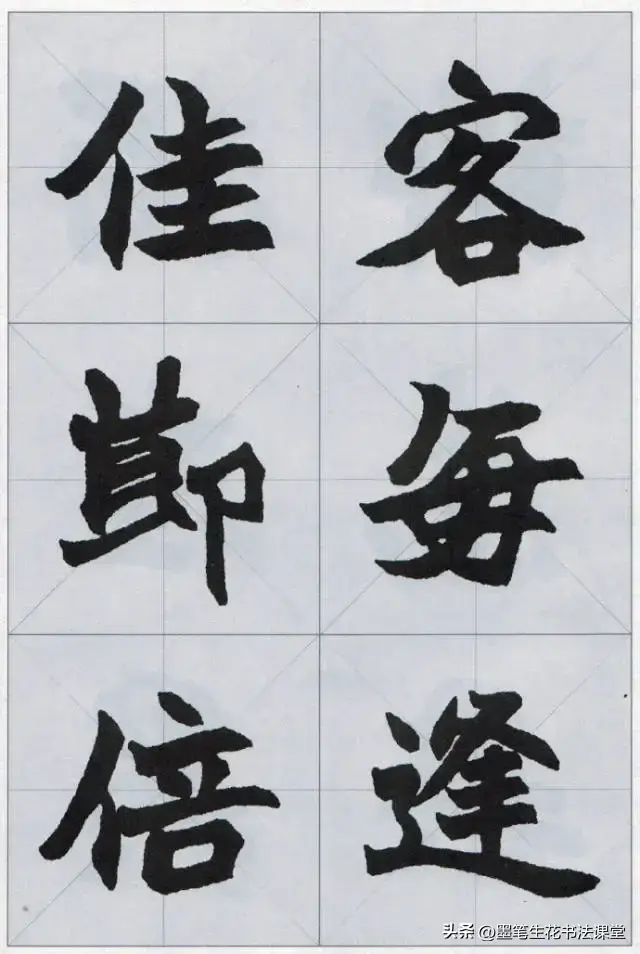 客每逢
佳節倍
头条 @墨笔生花书法课堂